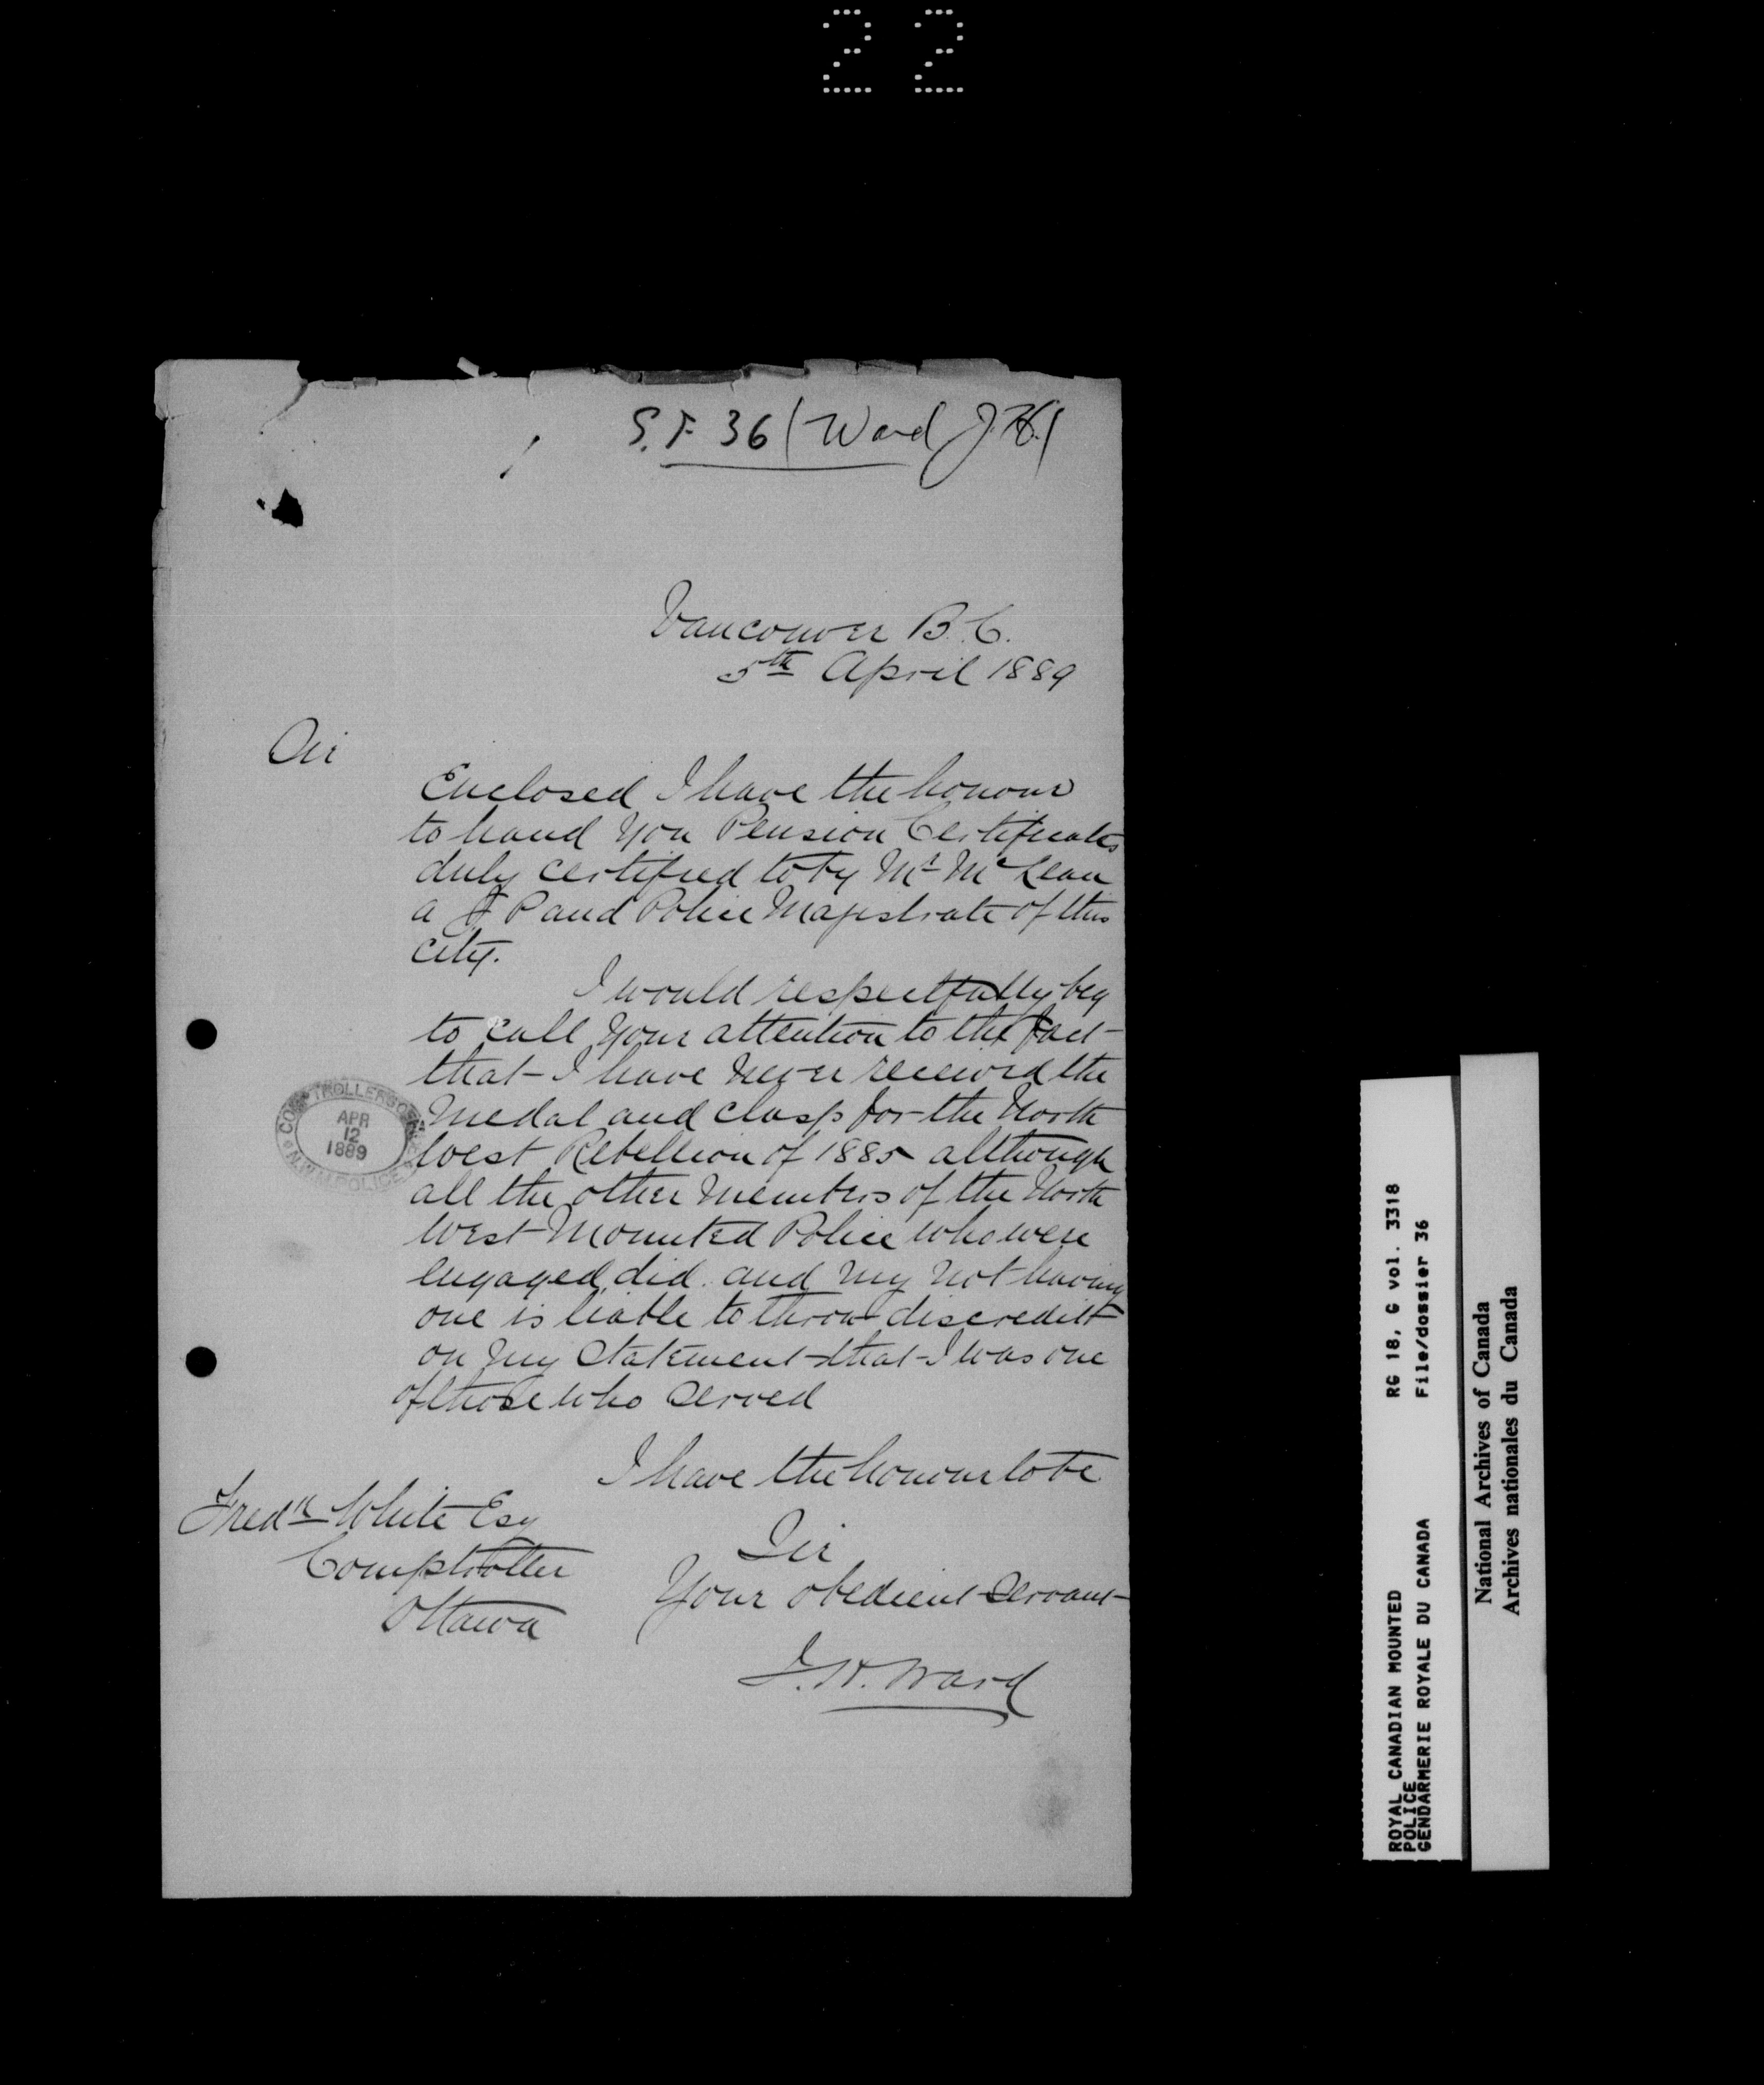 22
S.F. 36 (Ward J.H.)
Vancouver B.C.
5th April 1889
Sir
Enclosed I have the honour
to hand you Pension Certificates
duly certified to by Mr McLean
a J P and Police Magistrate of this
city.
I would respectfully beg
to call your attention to the fact
that I have never received the
medal and clasp for the North
West Rebellion of 1885 although
all the other members of the North
West Mounted Police who were
engaged, did. and my not having
one is liable to throw discredit
on my statement that I was one
of those who served
I have the honour to be
Sir
Your obedient servant
J.H. Ward
Fredk White Esq
Comptroller
Ottawa
COMPTROLLER'S OFFICE
APR
12
1889
N.W.M. POLICE
ROYAL CANADIAN MOUNTED RG 18, G vol. 3318
POLICE
GENDARMERIE ROYALE DU CANADA File/dossier 36
National Archives of Canada
Archives nationales du Canada